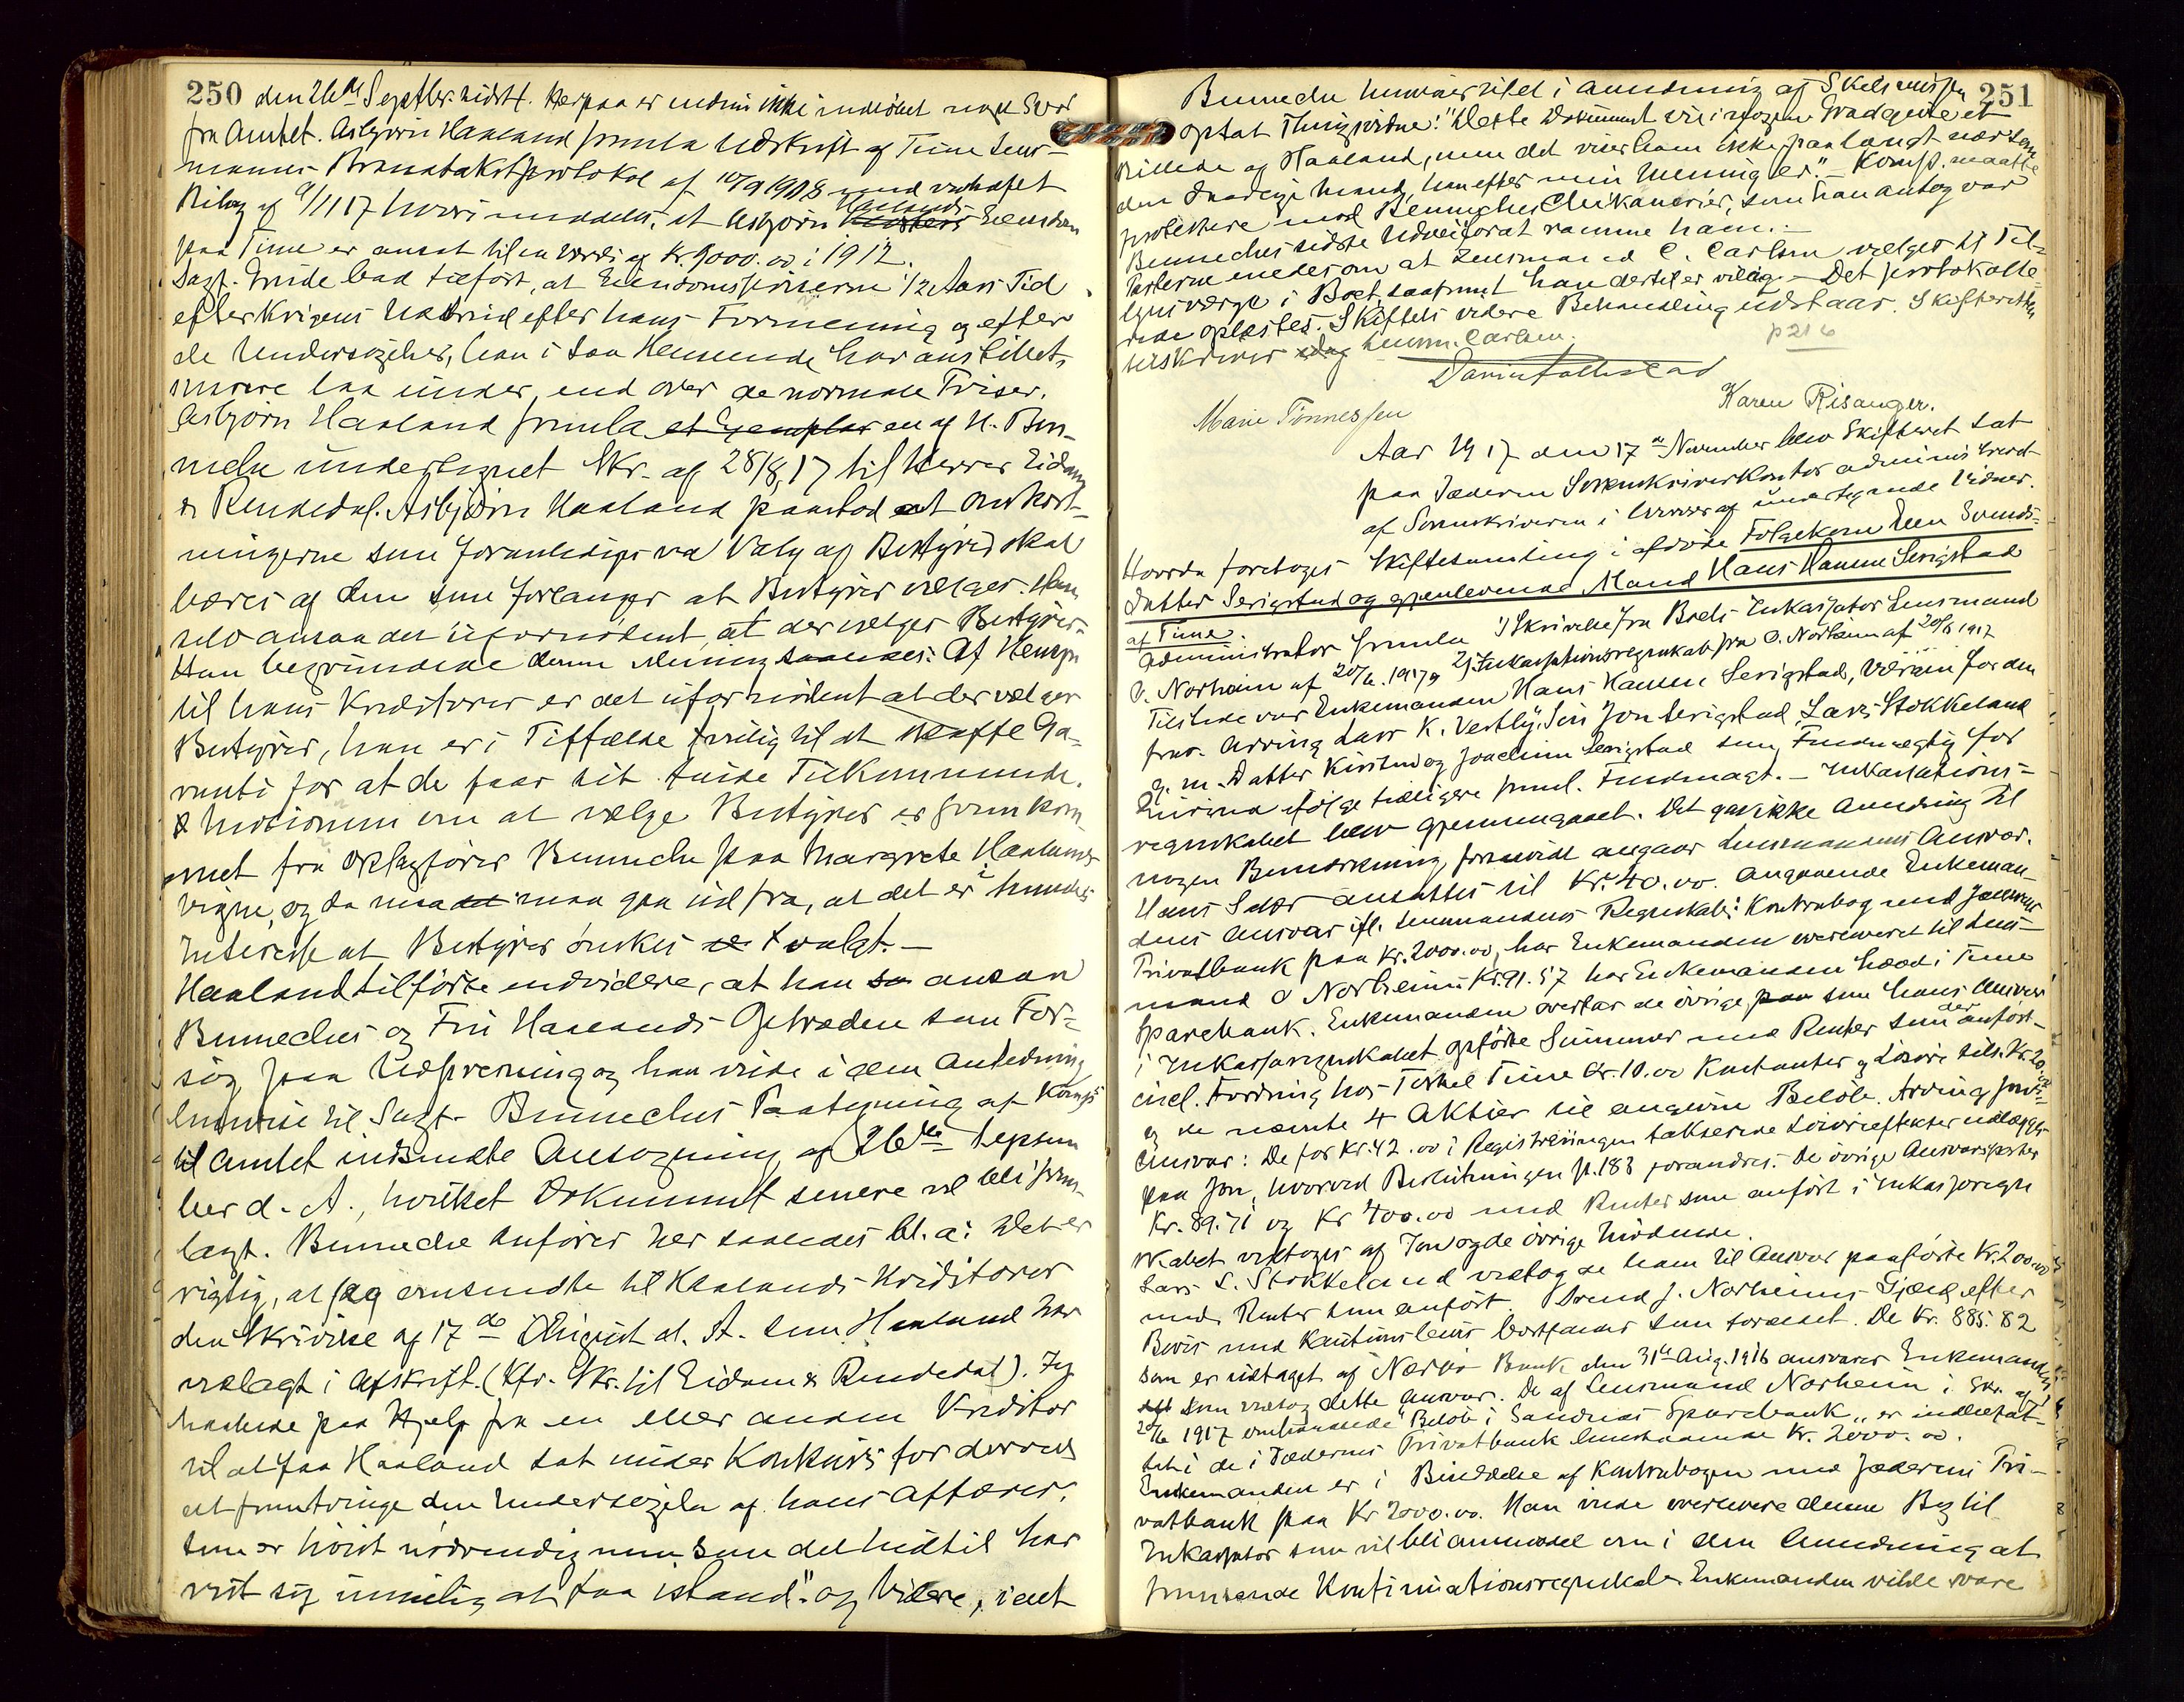 250
den 26de Septbr. sidstl. Herpaa er endnu ikke indløbet noget Svar
fra Amtet. Asbjørn Haaland fremla Udskrift af Time Lens-
mannis Brandtakstprotokol af 10/9 1908 med vedhæftet
Bilag af 9/11 17 hvori meddeles, at Asbjørn Haalands Eiendom
paa Time er ansat til en Værdi af Kr. 9000.00 i 1912.
Sagf. Eide bad tilført, at Eiendomspriserne 1/2 Aars Tid
efter Krigens Udbrud efter hans Formening og efter
de Undersøgelser, han i saa Henseende har anstillet,
snarere laa under, end over de normale Priser.
Asbjørn Haaland fremla et Exemplar en af H. Ben-
neche undertegnet Skr. af 28/8 17 til Herrer Eidam
& Rendedal. Asbjørn Haaland paastod at Omkost-
ningerne som foranlediges ved Valg af Bestyrer skal
bæres af den som forlanger at Bestyrer vælges. Han
selv ansaa det ufornødent, at der vælges Bestyrer.
Han begrundede denne Mening saaledes: Af Hensyn
til hans Kreditorer er det ufornødent at der vælges
Bestyrer, han er i Tilfælde villig til at skaffe Ga-
ranti for at de faar sit fulde Tilkommende.
Motionen om at vælge Bestyrer er fremkom-
met fra Sagfører Benneche paa Margrete Haalands
vegne, og da maa man gaa ud fra, at det er i hendes
Interesse at Bestyrer ønskes valgt. —
Haaland tilførte endvidere, at han ansaa
Benneches og Fru Haalands Optræden som For-
søg paa Udpresning og han vilde i den Anledning
henvise til Sagf. Benneches Paategning af Komp.
til Amtet indsendte Ansøgning af 26de Septem
ber d. A., hvilket Dokument senere vil bli frem-
lagt. Benneche anfører her saaledes bl. a: Det er
rigtig, at jeg omsendte til Haalands Kreditorer
den Skrivelse af 17de August d. A. som Haaland har
vedlagt i Afskrift. (Kfr. Skr. til Eidam & Rendedal). Jeg
haabede paa Hjelp fra en eller anden Kreditor
til at faa Haaland sat under Konkurs for derved
at fremtvinge den Undersøgelse af hans Affærer,
som er høist nødvendig men som det hidtil har
vist sig umulig at faa istand." og videre, idet
251
Benneche henviser til et i Anledning af Skilsmissen
optat Thingsvidne: "Dette Dokument vil i nogen Grad give et
Billede af Haaland, men det viser ham ikke paa langt nær som
den Mand, han efter min Mening er." — Komp. maatte
protestere mod Benneches Chikanerier, som han antog var
Benneches sidste Udvei for at ramme ham. —
Parterne enedes om at Lensmand C. Carlsen vælges til Til-
synsverge i Boet, saafremt han dertil er villig. — Det protokolle-
rede oplæstes. Skiftets videre Behandling udstaar. Skifteretten
p 216
Marie Tønnessen
Karen Risanger.
Aar 1917 den 17de November blev Skifteret sat
paa Jæderen Sorenskriverkontor administreret
af Sorenskriveren i Overvær af undertegnede Vidner.
Hvorda foretoges Skiftesamling i afdøde Følgekone Elen Svends-
datter Serigstad og gjenlevende Mand Hans Hansen Serigstad
af Time.
Administrator fremla 1) Skrivelse fra Boets Inkassator Lensmand
O. Norheim af 20/6. 1917 og 2) Inkassationsregnskab fra O. Norheim af 20/6 1917
Tilstede var Enkemanden Hans Hansen Serigstad, Værgen for den
frav. Arving Lars K. Vestly, Søn Jon Serigstad, Lars Stokkeland
g. m. Datter Kirstine og Joachim Serigstad som Fuldmægtig for
Enkemanden ifølge tidligere freml. Fuldmagt. — Inkassations-
regnskabet blev gjennemgaaet. Det gav ikke Anledning til
nogen Bemærkning, forsaavidt angaar Lensmandens Ansvar.
Hans Salær ansattes til Kr. 40.00. Angaaende Enkeman-
dens Ansvar ifl. Lensmandens Regnskab: Kontrabog med Jæderens
Privatbank paa Kr. 2000.00, har Enkemanden overleveret til Lens-
mand O Norheim Kr. 91.57 har Enkemanden hævet i Time
Sparebank. Enkemanden overtar de øvrige som hans Ansvar
i Inkassoregnskabet opførte Summer med Renter som der anført —
incl. Fordring hos Torkel Time Kr. 10.00 Kontanter og Løsøre tils. Kr. 20.00
og de nævnte 4 Aktier til angivne Beløb. Arving Jons
Ansvar: De for Kr. 42.00 i Registreringen takserede Løsøreeffekter udlægges
paa Jon, hvorved Beslutningen p. 183 forandres. De øvrige Ansvarsposter
Kr. 89.71 og Kr 400.00 med Renter som anført i Inkassoregn-
skabet vedtoges af Jon og de øvrige Mødende.
Lars L. Stokkeland vedtog de ham til Ansvar paaførte Kr. 200.00
med Renter som anført. Svend J. Norheims Gjæld efter
Bevis med Kautionsbevis bortfaldes som foreldet. De Kr. 885.82
som er udtaget af Nærbø Bank den 31te Aug. 1916 ansvarer Enkemanden
som vedtog dette Ansvar. De af Lensmand Norheim i Skr. af
20/6 1917 omhandlede Beløb i Sandnes Sparebank, er indbefat-
tet i de i Jæderens Privatbank henstaaende Kr. 2000.00.
Enkemanden er i Besiddelse af Kontrabogen med Jæderens Pri-
vatbank paa Kr 2000.00. Han vilde overlevere denne Bog til
Inkassator som vil bli anmodet om i den Anledning at
fremsende Kontinuationsregnskab. Enkemanden vilde svare